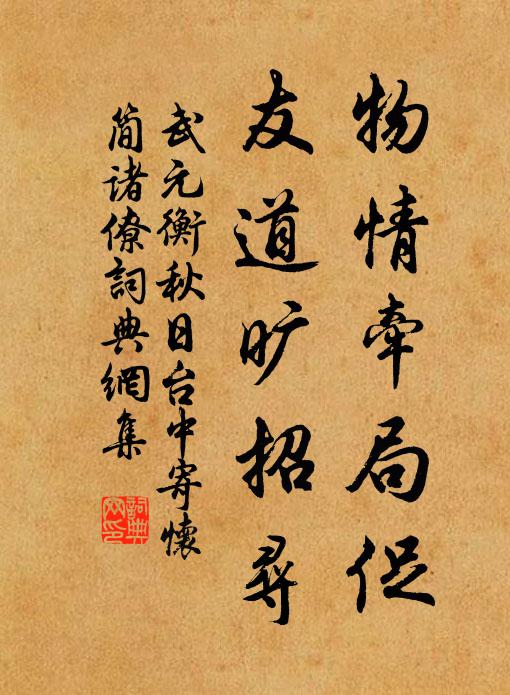 物情牵局促
友道旷招寻
武元衡秋日台中寄懷
简诸僚詞典網集
詞典
网印